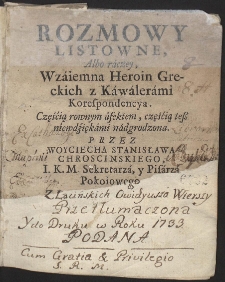 ROZMOWY
LISTOWNE,
Albo raczey,
Wzáiemna Heroin Gre-
ckich z Káwálerámi
Korespondencya.
Częścią rownym áfektem, częścią też
niewdźiękámi nádgrodzona.
PRZEZ
WOYCIECHA STANISŁAWA
CHROSCINSKIEGO,
I. K. M. Sekretarzá, y Pisárzá
Pokoiowego
Z Łacińskich Owidyusza Wierszy
Przetłumaczona
Y do Druku w Roku 1733
PODANA
Cum Gratia & Privilegio
S. R. M.